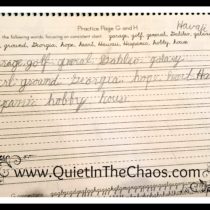 Practice Page G and H
the following words, focusing on consistent slant. garage, golf, general, Galileo, galaxy,
girl, ground, Georgia, hope, heart, Hawaii, Hispanic, hobby, hour
garage golf general Galileo galaxy
girl ground Georgia hope heart Ha
hobby hour
www.QuietInTheChaos.com